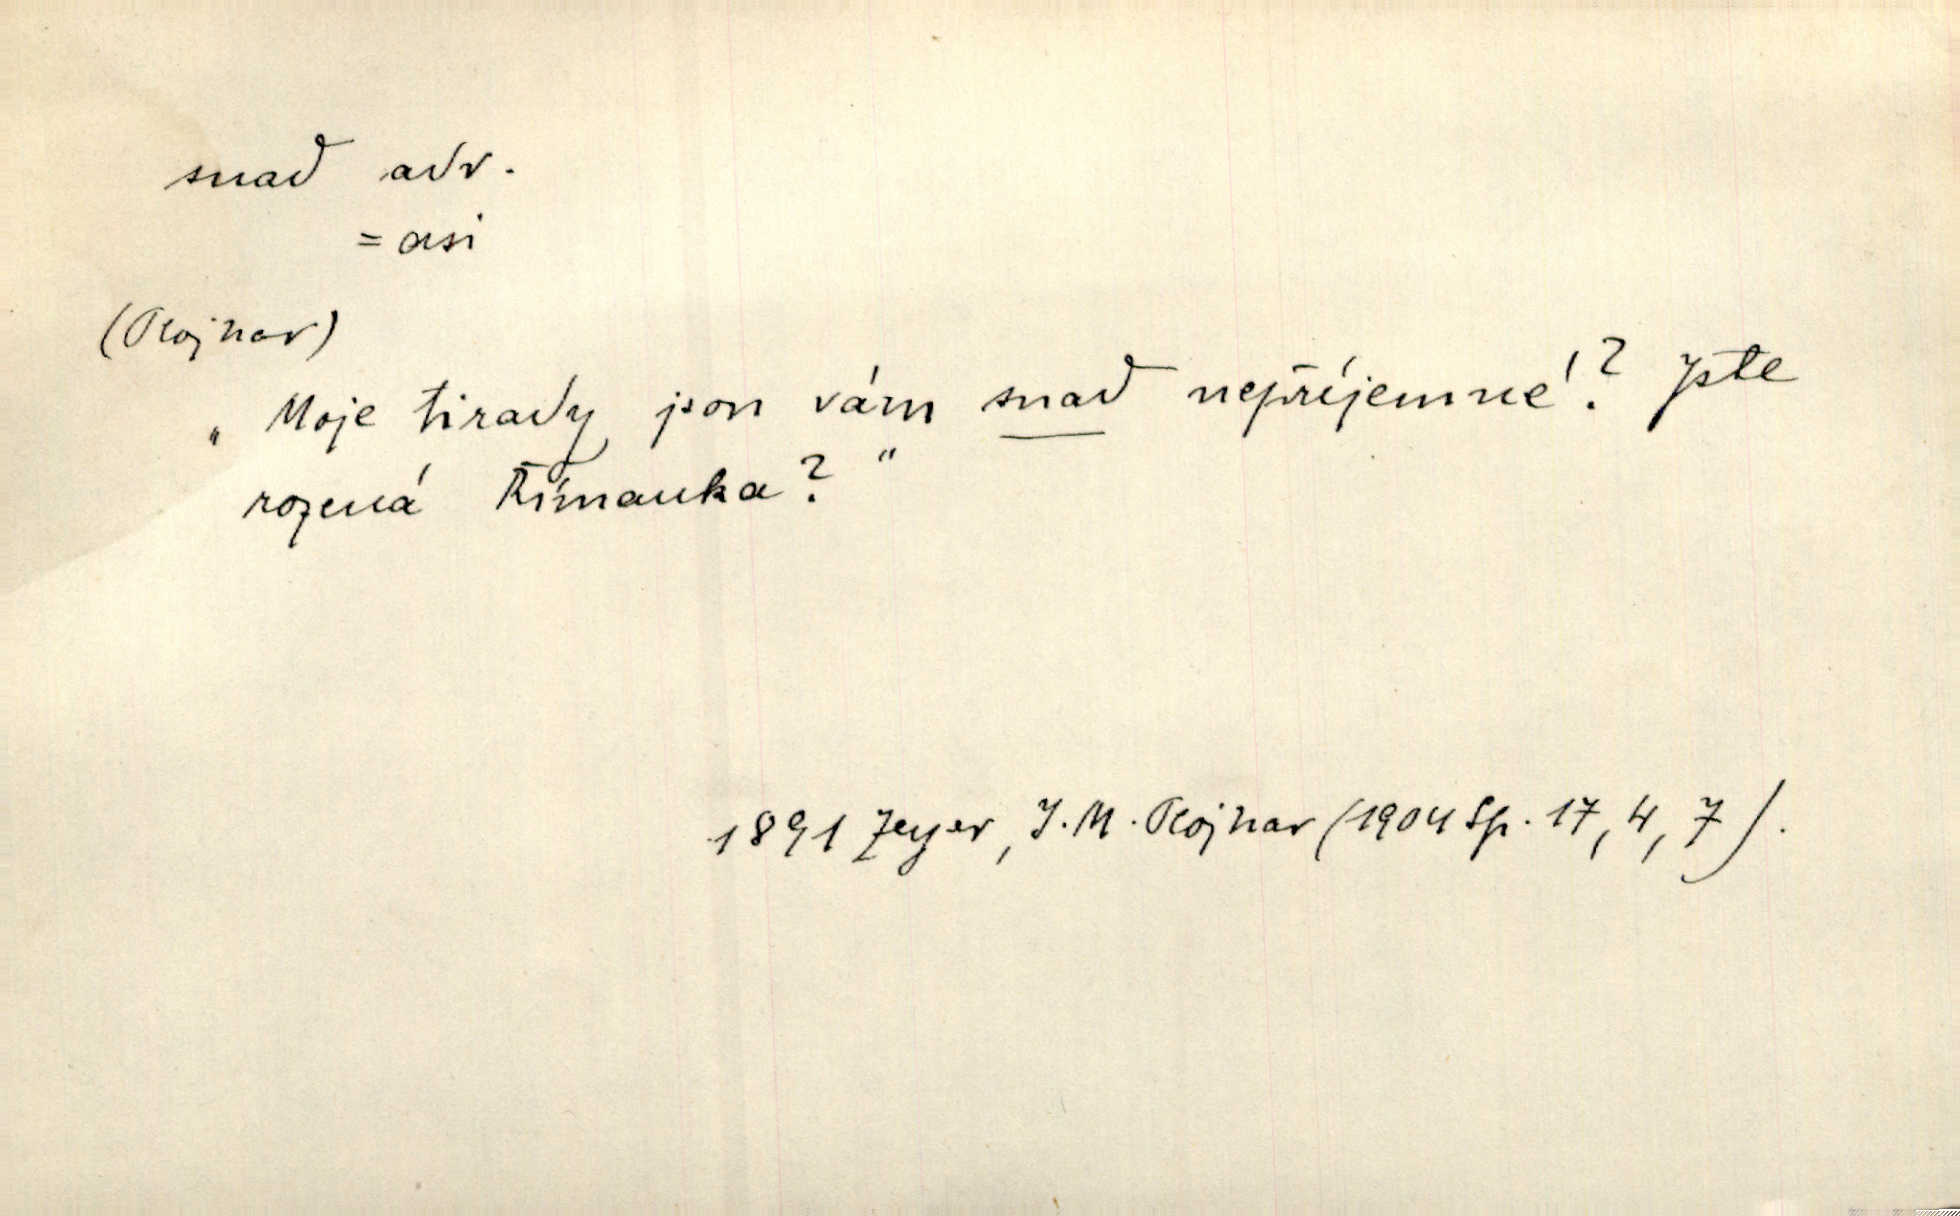 snaď adv.
= asi
(Plojhar)
„Moje tirady jsou vám snaď nepříjemné? Jste
rozená Římanka?“
1891 Zeyer, J. M. Plojhar (1904 Sp. 17, 4, 7).